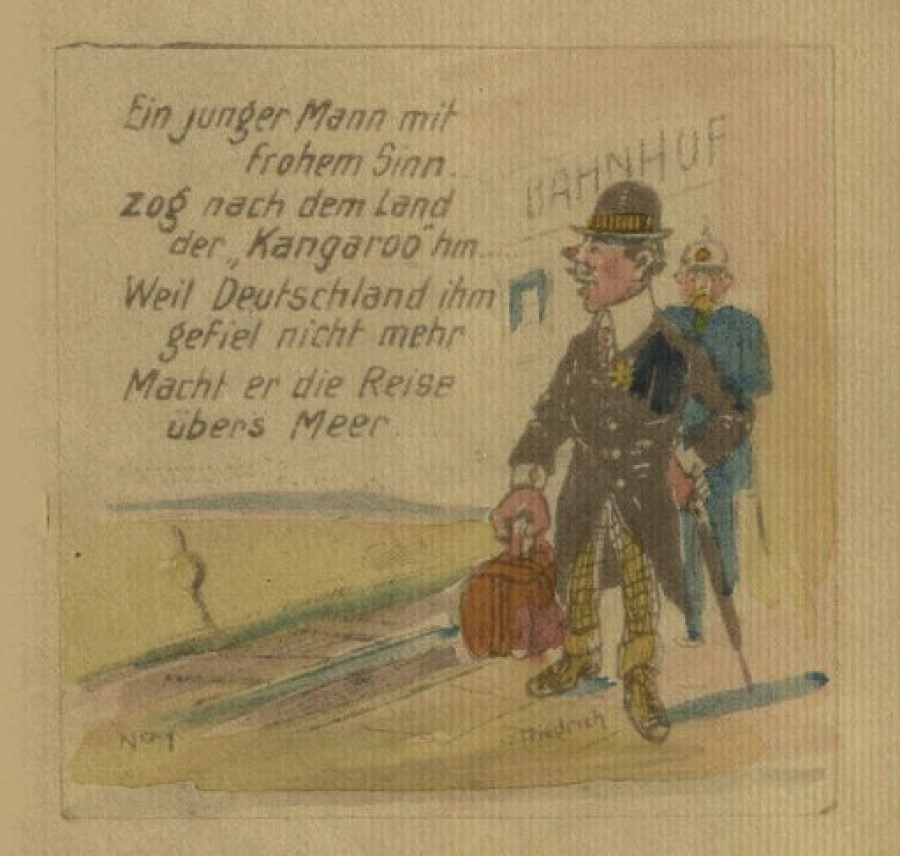 Ein junger Mann mit
frohem Sinn..
zog nach dem Land
der „Kangaroo" hin....
Weil Deutschland ihm
gefiel nicht mehr
Macht er die Reise
übers Meer....
BAHNHOF
Friedrich